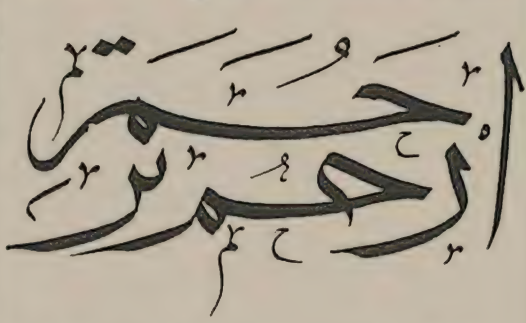 ارحم ترحم